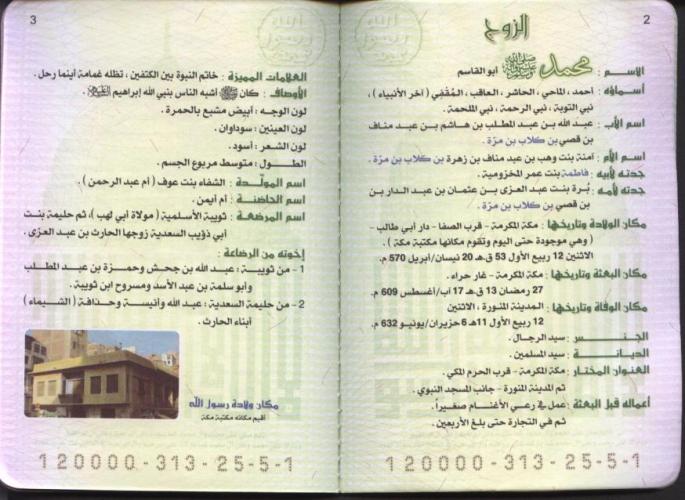 2
الزوج
الاسـم : محمد ﷺ أبو القاسم
أسماؤه : أحمد، الماحي، الحاشر، العاقب، المُقَفي (آخر الأنبياء)،
نبي التوبة، نبي الرحمة، نبي الملحمة.
اسم الأب : عبد الله بن عبد المطلب بن هاشم بن عبد مناف
بن قصي بن كلاب بن مرّة.
اسم الأم : آمنة بنت وهب بن عبد مناف بن زهرة بن كلاب بن مرّة.
جدته لأبيه : فاطمة بنت عمر المخزومية.
جدته لأمه : بُرة بنت عبد العزى بن عثمان بن عبد الدار بن
بن قصي بن كلاب بن مرّة.
مكان الولادة وتاريخها : مكة المكرمة - قرب الصفا - دار أبي طالب -
( وهي موجودة حتى اليوم وتقوم مكانها مكتبة مكة ).
الاثنين 12 ربيع الأول 53 ق.هـ 20 نيسان/أبريل 570 م.
مكان البعثة وتاريخها : مكة المكرمة - غار حراء.
27 رمضان 13 ق.هـ 17 آب/أغسطس 609 م.
مكان الوفاة وتاريخها : المدينة المنورة، الاثنين
12 ربيع الأول 11هـ 6 حزيران/يونيو 632 م.
الجنـس : سيد الرجال.
الديانـة : سيد المسلمين.
العنوان المختار : مكة المكرمة - قرب الحرم المكي.
ثم المدينة المنورة - جانب المسجد النبوي.
أعماله قبل البعثة : عمل في رعي الأغنام صغيراً.
ثم في التجارة حتى بلغ الأربعين.
120000-313-25-5-1
3
العلامات المميزة : خاتم النبوة بين الكتفين، تظله غمامة أينما رحل.
الأوصاف : كان ﷺ أشبه الناس بنبي الله إبراهيم
لون الوجه : أبيض مشبع بالحمرة.
لون العينين : سوداوان.
لون الشعر : أسود.
الطـول : متوسط مربوع الجسم.
اسم المولّدة : الشفاء بنت عوف ( أم عبد الرحمن ).
اسم الحاضنة : أم أيمن.
اسم المرضعة : ثويبة الأسلمية ( مولاة أبي لهب )، ثم حليمة بنت
أبي ذؤيب السعدية زوجها الحارث بن عبد العزى.
إخوته من الرضاعة :
1 - من ثويبة : عبد الله بن جحش وحمزة بن عبد المطلب
وأبو سلمة بن عبد الأسد ومسروح ابن ثويبة.
2 - من حليمة السعدية : عبد الله وأنيسة وحذافة ( الشيماء )
أبناء الحارث.
مكان ولادة رسول الله
أقيم مكانه مكتبة مكة
120000-313-25-5-1